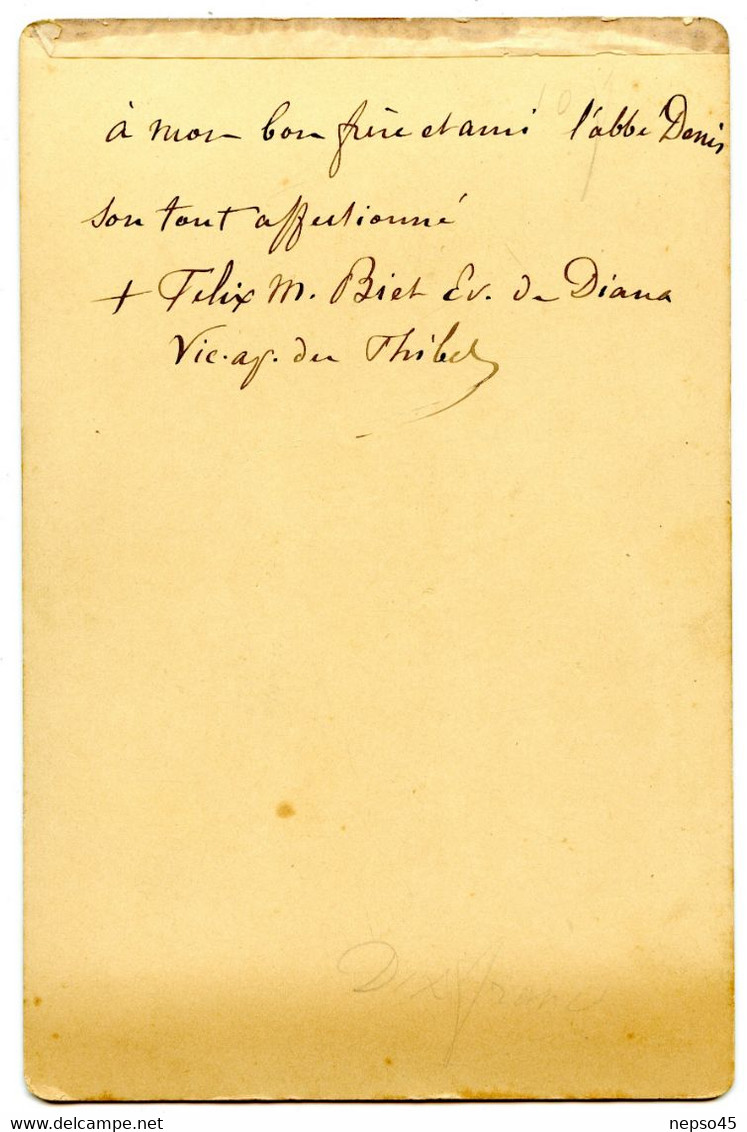 à mon bon frère et ami l'abbé Denis
son tout affectionné
+ Felix M. Biet Ev. de Diana
Vic. ap. du Thibet
Dix francs
delcampe.net
nepso45